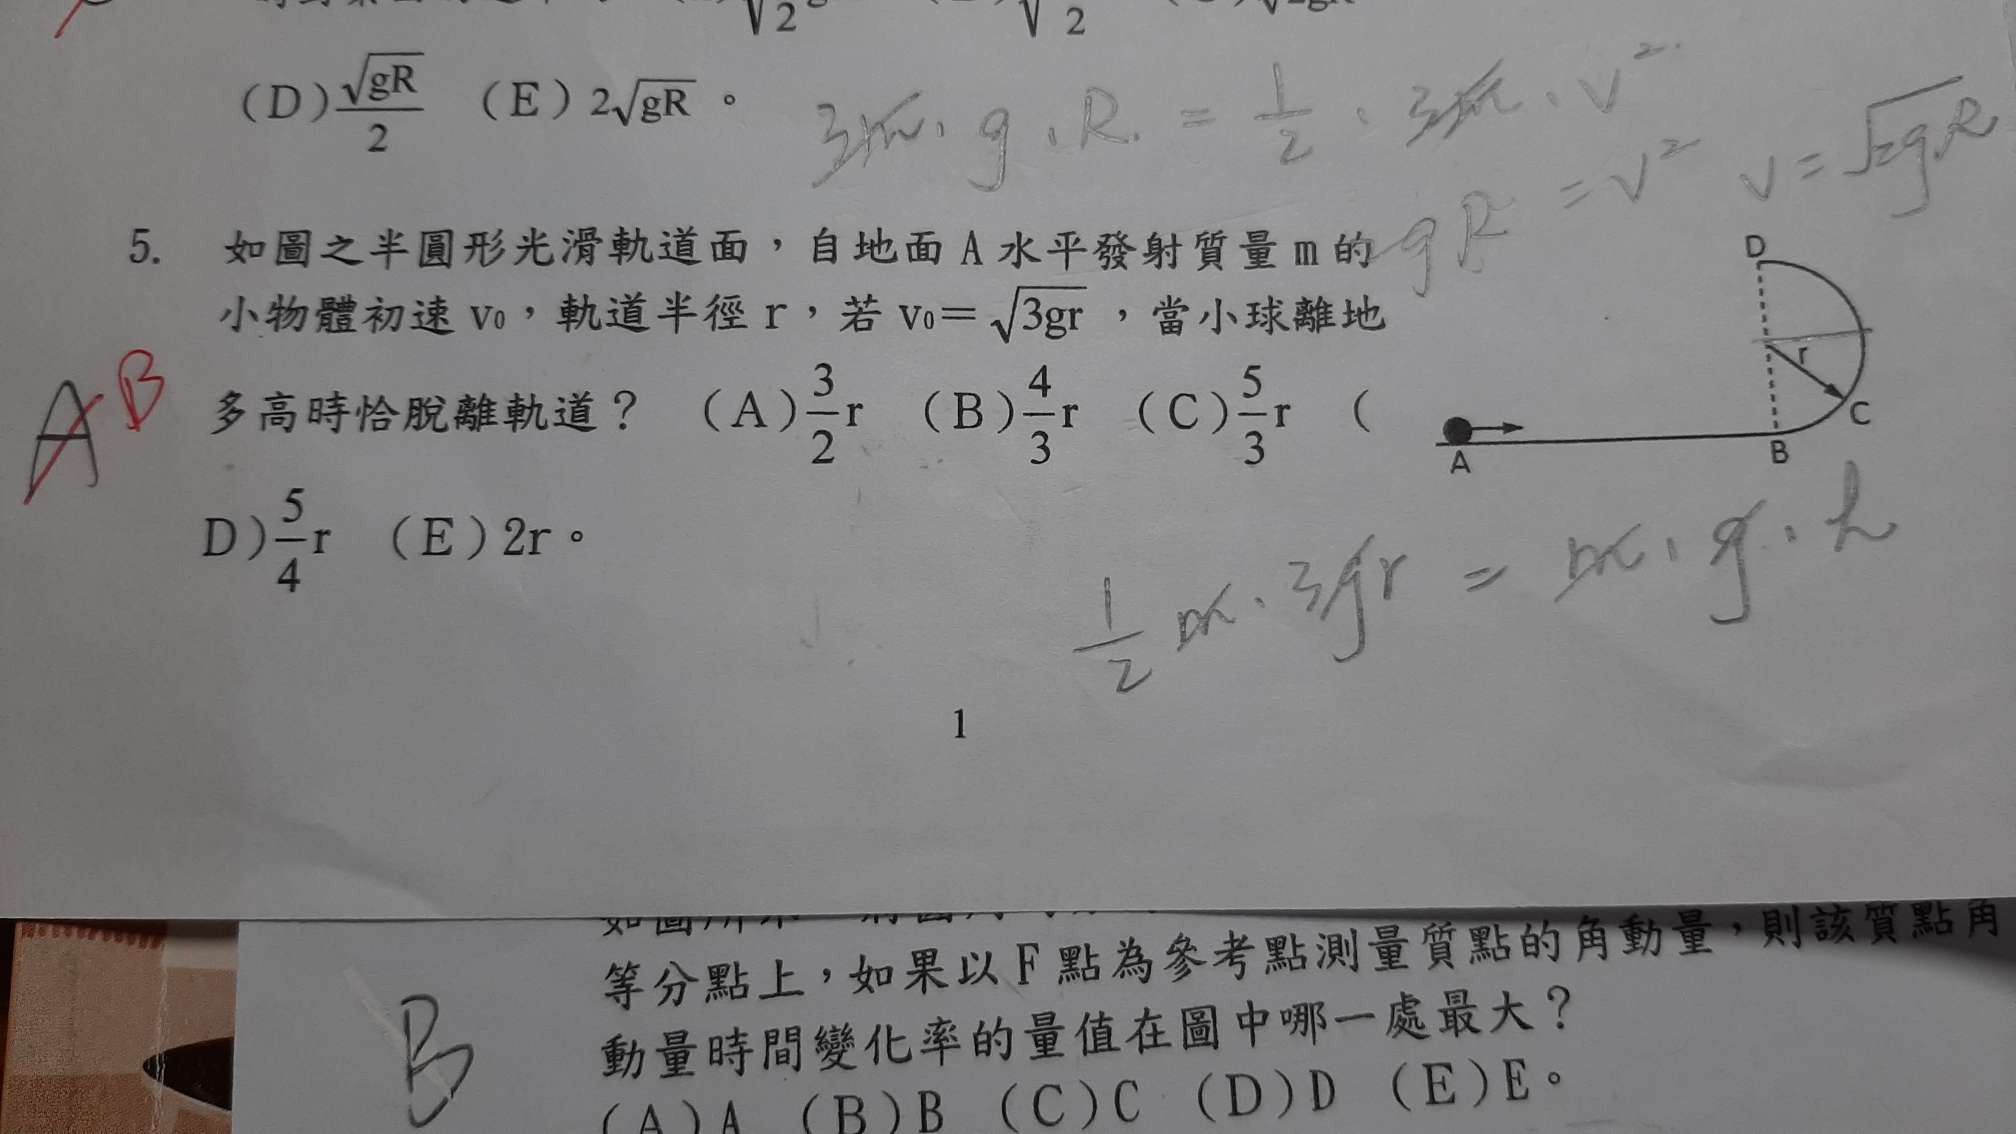 (D)√gR/2 (E)2√gR。
3m·g·R = 1/2·3m·v²
gR = v² v=√2gR
5. 如圖之半圓形光滑軌道面，自地面 A 水平發射質量 m 的
小物體初速 v₀，軌道半徑 r，若 v₀＝√3gr，當小球離地
多高時恰脫離軌道？ (A)3/2r (B)4/3r (C)5/3r (
D)5/4r (E)2r。
A B
D
r
C
A
B
1/2 m·3gr = m·g·h
1
等分點上，如果以 F 點為參考點測量質點的角動量，則該質點角
動量時間變化率的量值在圖中哪一處最大？
B
(A)A (B)B (C)C (D)D (E)E。